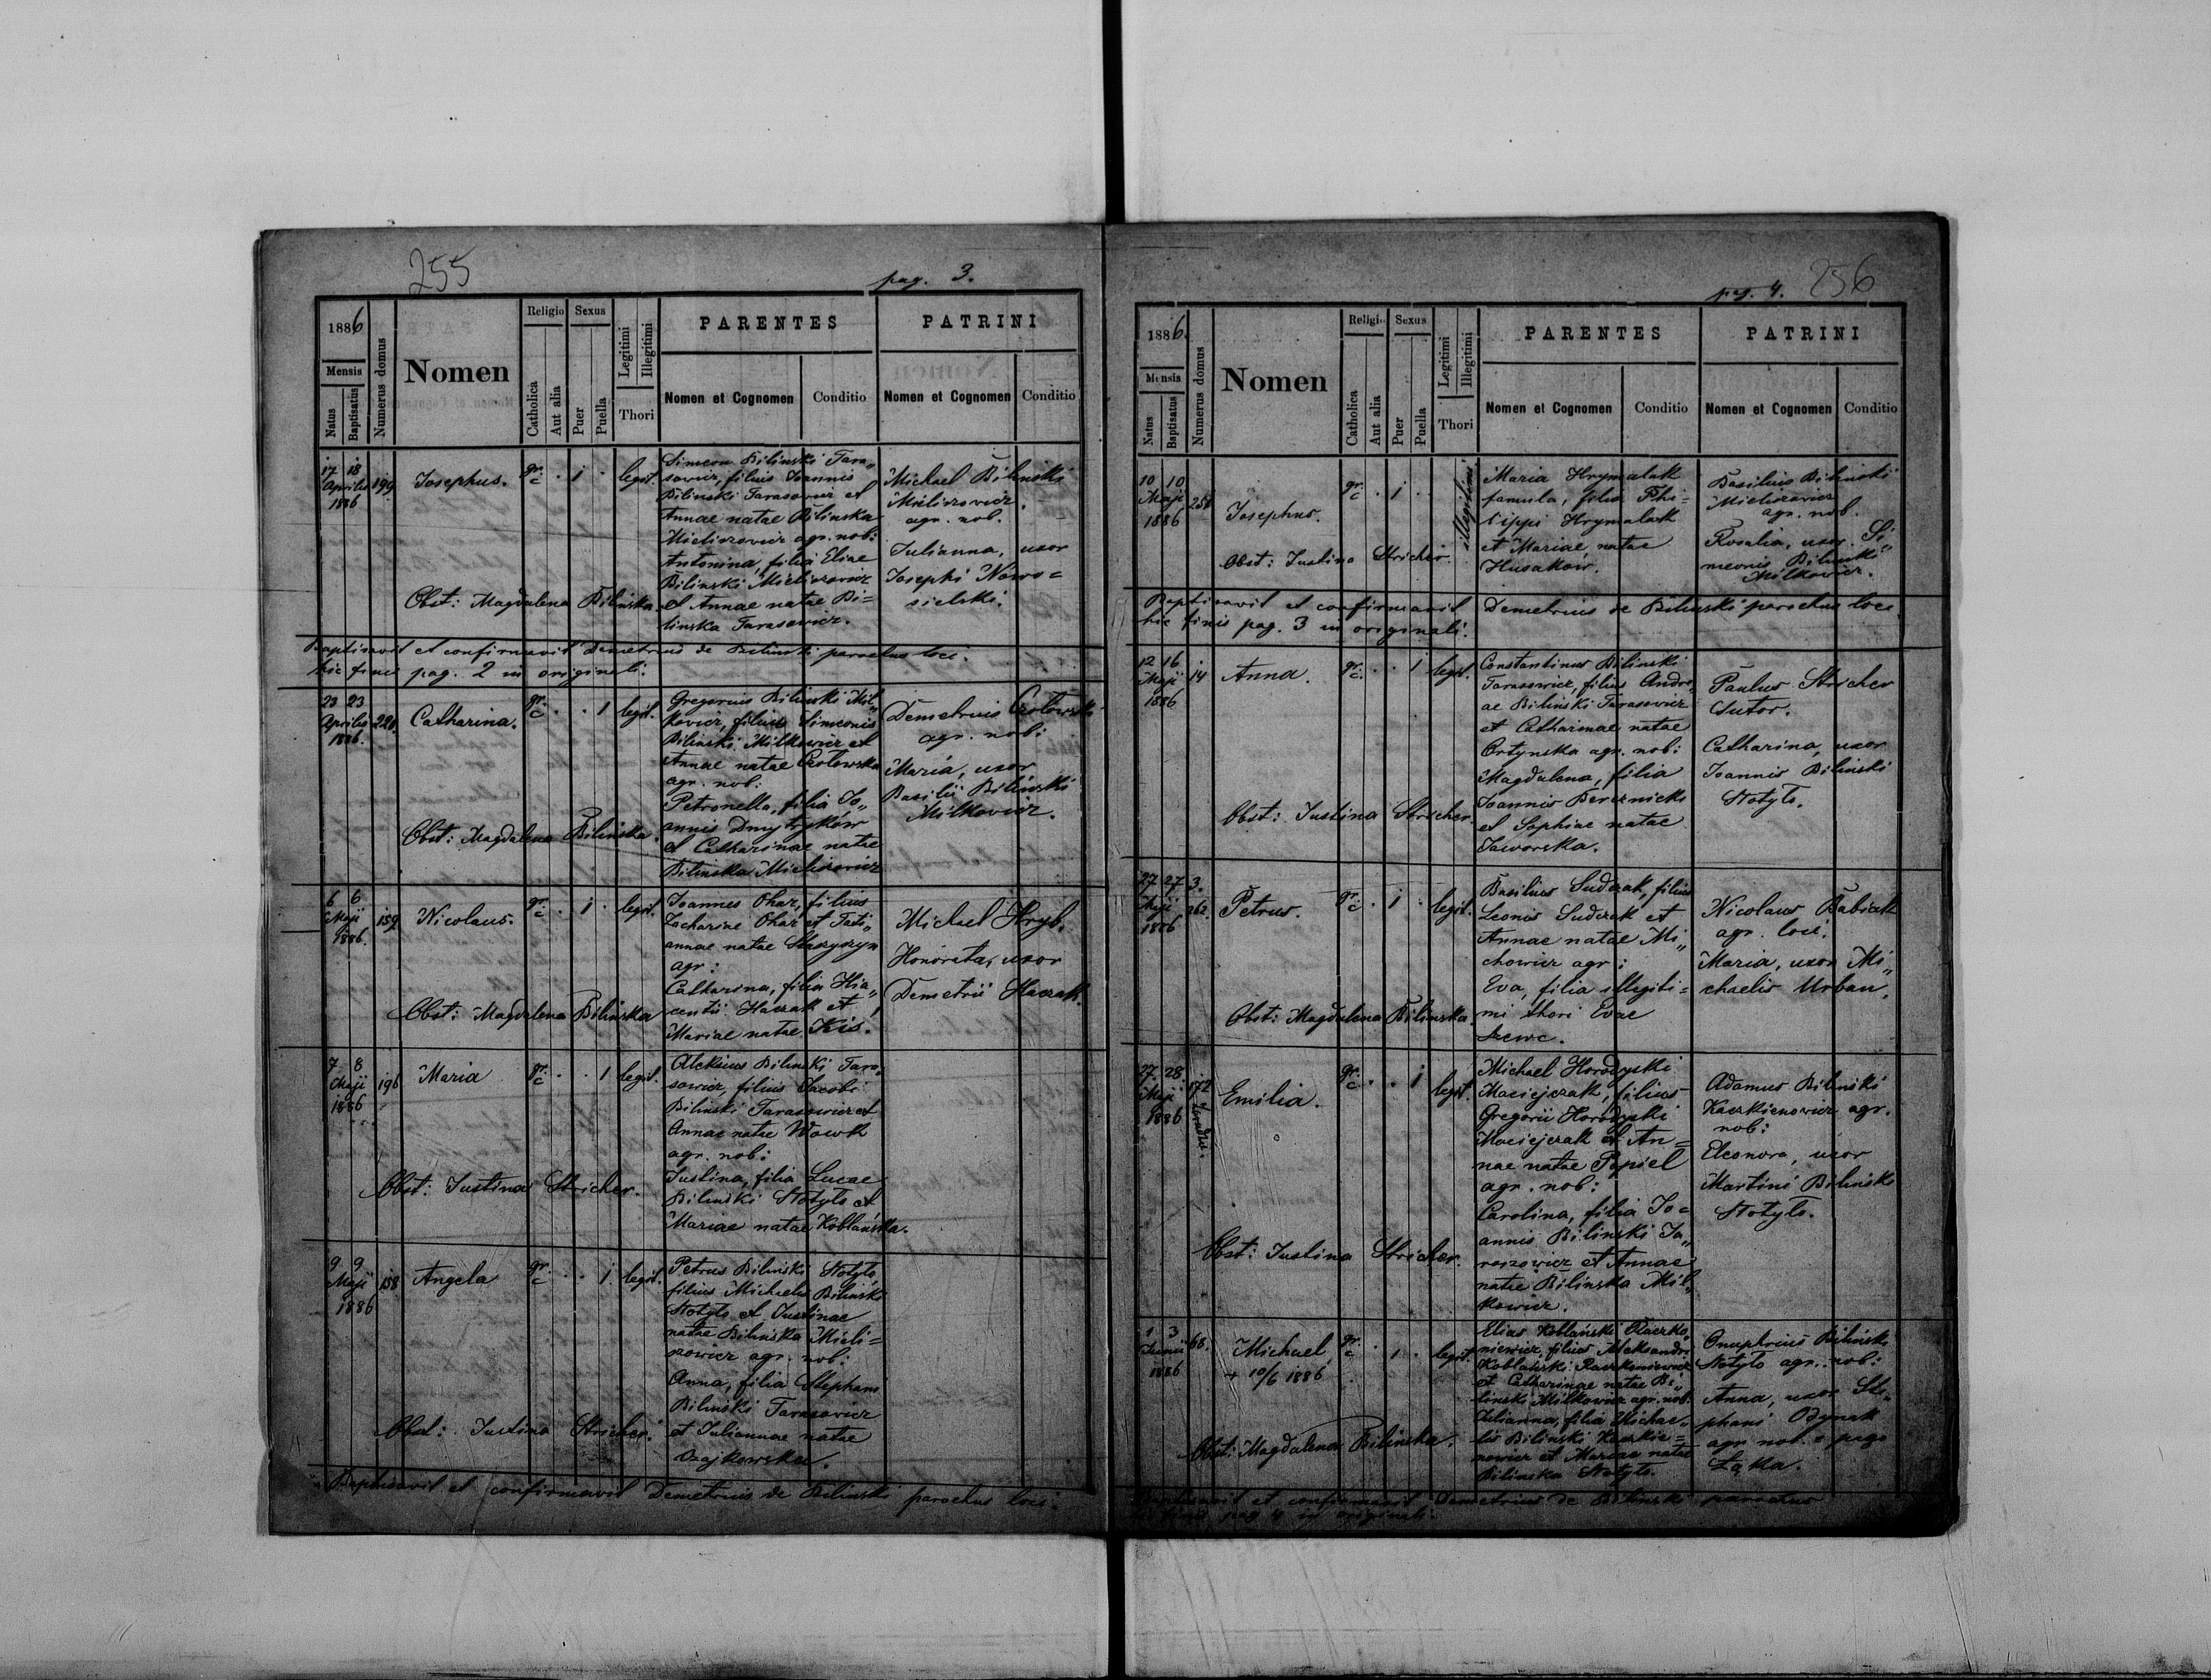 255
pag. 3.
1886
Mensis
Natus
Baptisatus
Numerus domus
Nomen
Religio
Catholica
Aut alia
Sexus
Puer
Puella
Legitimi
Illegitimi
Thori
PARENTES
Nomen et Cognomen
Conditio
PATRINI
Nomen et Cognomen
Conditio
17 18
Aprilis
1886
199
Josephus.
gr. c
1
legit.
Simeon Bilinski Tara„
sowicz, filius Joannis
Bilinski Tarasowicz et
Annae natae Bilinska
Mieliszowicz agr. nob:
Antonina, filia Eliae
Bilinski Mieliszowicz
et Annae natae Bi=
linska Tarasowicz.
Michael Bilinski
Mieliszowicz.
agr. nob.
Julianna, uxor
Josephi Nowo=
sielski.
Obst: Magdalena Bilinska.
Baptisavit et confirmavit Demetrius de Bilinski parochus loci.
hic finis pag. 2 in originali.
23 23
Aprilis
1886.
221.
Catharina.
gr. c
1
legit.
Gregorius Bilinski Mil„
kowicz, filius Simeonis
Bilinski Milkowicz et
Annae natae Czolowska
agr. nob:
Petronella, filia Jo„
annis Dmytryków
et Catharinae natae
Bilinska Mieliszowicz
Demetrius Czolowski
agr. nob:
Maria, uxor
Basilii Bilinski
Milkowicz.
Obst: Magdalena Bilinska.
6 6
Maji
1886.
159
Nicolaus.
gr. c
1
legit.
Joannes Ohar, filius
Zachariae Ohar et Tati„
annae natae
agr:
Catharina, filia Hia„
centii Haczak et
Mariae natae Kis.
Michael Hryb.
Honorata, uxor
Demetrii Haczak.
Obst: Magdalena Bilinska
7 8
Maji
1886
196
Maria
gr. c
1
legit.
Aleksius Bilinski Tara„
sowicz, filius Jacobi
Bilinski Tarasowicz et
Annae natae Wowk
agr. nob:
Justina, filia Lucae
Bilinski Stotylo et
Mariae natae Koblańska.
Obst: Justina Stricher.
9 9
Maji
1886
158
Angela
gr. c
1
legit.
Petrus Bilinski Stotylo,
filius Michaelis Bilinski
Stotylo et Justinae
natae Bilinska Mieli=
szowicz agr. nob:
Anna, filia Stephani
Bilinski Tarasowicz
et Juliannae natae
Czajkowska.
Obst: Justina Stricher.
Baptisavit et confirmavit Demetrius de Bilinski parochus loci.
256
pag. 4.
1886.
Mensis
Natus
Baptisatus
Numerus domus
Nomen
Religio
Catholica
Aut alia
Sexus
Puer
Puella
Legitimi
Illegitimi
Thori
PARENTES
Nomen et Cognomen
Conditio
PATRINI
Nomen et Cognomen
Conditio
10 10
Maji
1886
Josephus.
gr. c
1
illegitimi
Maria Hrymalak
famula, filia Phi=
lippi Hrymalak
et Mariae natae
Husaków.
Basilius Bilinski
Mieliszowicz
agr. nob.
Rosalia, uxor Si„
meonis Bilinski
Milkowicz.
Obst: Justina Stricher.
Baptisavit et confirmavit Demetrius de Bilinski parochus loci
hic finis pag. 3 in originali.
12 16
Maji
1886
14
Anna.
gr. c.
1
legit.
Constantinus Bilinski
Tarasowicz, filius Andre„
ae Bilinski Tarasowicz
et Catharinae natae
Ortynska agr. nob:
Magdalena, filia
Joannis Bereznicki
et Sophiae natae
Jaworska.
Paulus Stricher
Sutor.
Catharina, uxor
Joannis Bilinski
Stotylo.
Obst: Justina Stricher.
27 27
Maji
1886
3.
262.
Petrus.
gr. c
1
legit.
Basilius Sudczak, filius
Leonis Sudczak et
Annae natae Mi„
chowicz agr:
Eva, filia illegiti=
mi thori Evae
Szewc.
Nicolaus Babiak
agr. loci.
Maria, uxor Mi„
chaelis Urban.
Obst: Magdalena Bilinska.
27 28
Maji
1886
172
Emilia.
gr. c
1
legit.
Michael Horodyski
Maciejczak, filius
Gregorii Horodyski
Maciejczak et An=
nae natae Popiel
agr. nob:
Carolina, filia Jo=
annis Bilinski Ja„
roszowicz et Annae
natae Bilinska Mil„
kowicz.
Adamus Bilinski
Kaczkienowicz agr.
nob:
Eleonora, uxor
Martini Bilinski
Stotylo.
Obst: Justina Stricher.
1 3
Junii
1886
68.
Michael
+ 10/6 1886
gr. c
1
legit.
Elias Koblański Raczko„
niewicz, filius Aleksandri
Koblański Raczkoniewicz
et Catharinae natae Bi„
linski Milkowicz agr. nob.
Julianna, filia Michae„
lis Bilinski Kaczkie=
nowicz et Mariae natae
Bilinska Stotylo.
Onuphrius Bilinski
Stotylo agr. nob:
Anna, uxor Ste„
phani Odynak
agr. nob. e pago
Łąka.
Obst: Magdalena Bilinska.
Baptisavit et confirmavit Demetrius de Bilinski parochus
hic finis pag 4 in originali.